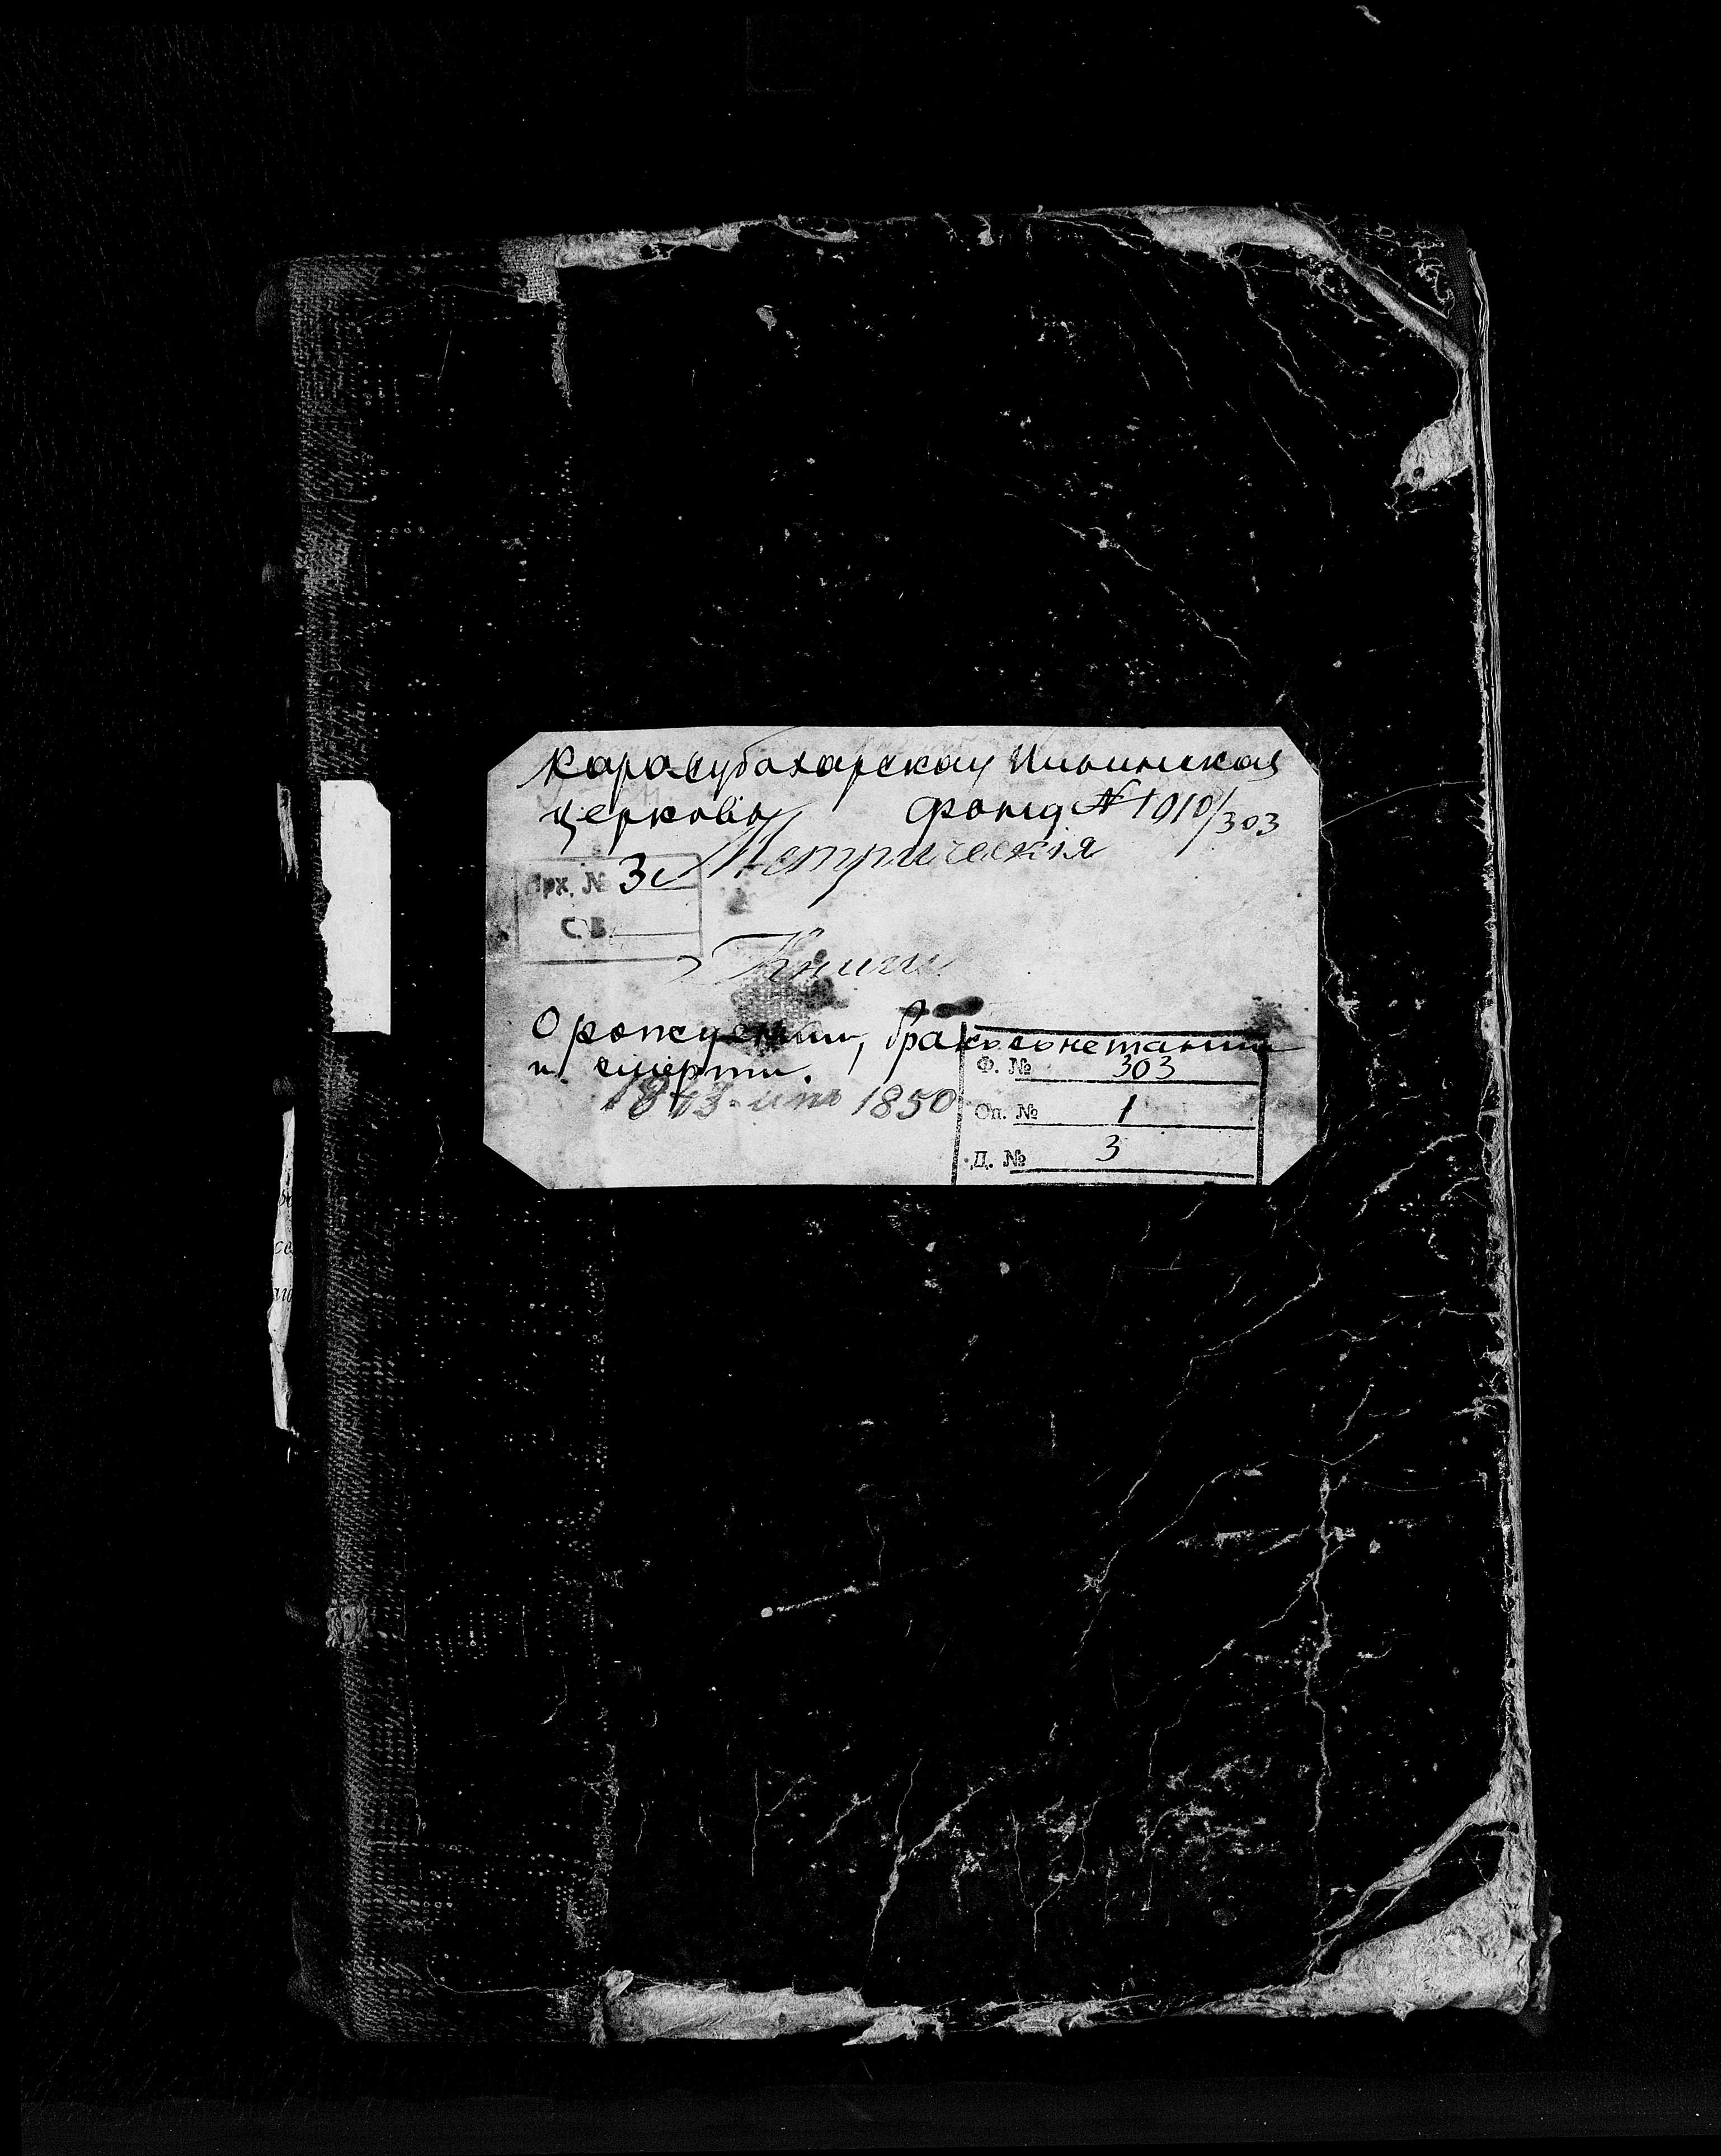 Карасубазарская Ильинская
церковь Фонд № 1010/303
Метрическія
Арх. № 3
С.В.
Книги
О рождении, бракосочетании
и смерти.
1843 - 1850
Ф. № 303
Оп. № 1
Д. № 3